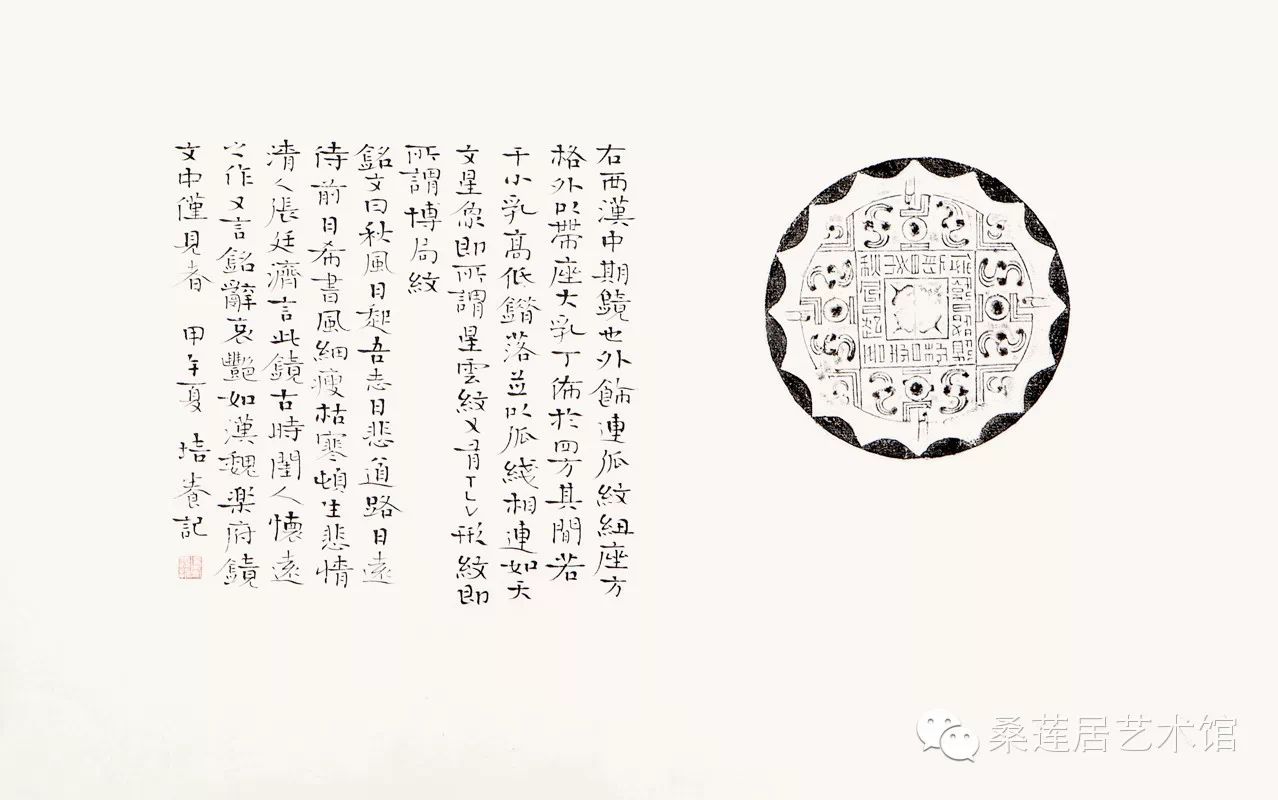 右西漢中期鏡也外飾連弧紋紐座方
格外以帶座大乳丁佈於四方其間若
干小乳高低錯落並以弧綫相連如天
文星象即所謂星雲紋又有TLV形紋即
所謂博局紋
銘文曰秋風日起吾志日悲道路日遠
侍前日希書風細瘦枯寒頓生悲情
清人張廷濟言此鏡古時閨人懷遠
之作又言銘辭哀艷如漢魏樂府鏡
文中僅見者 甲午夏 培養記
桑莲居艺术馆